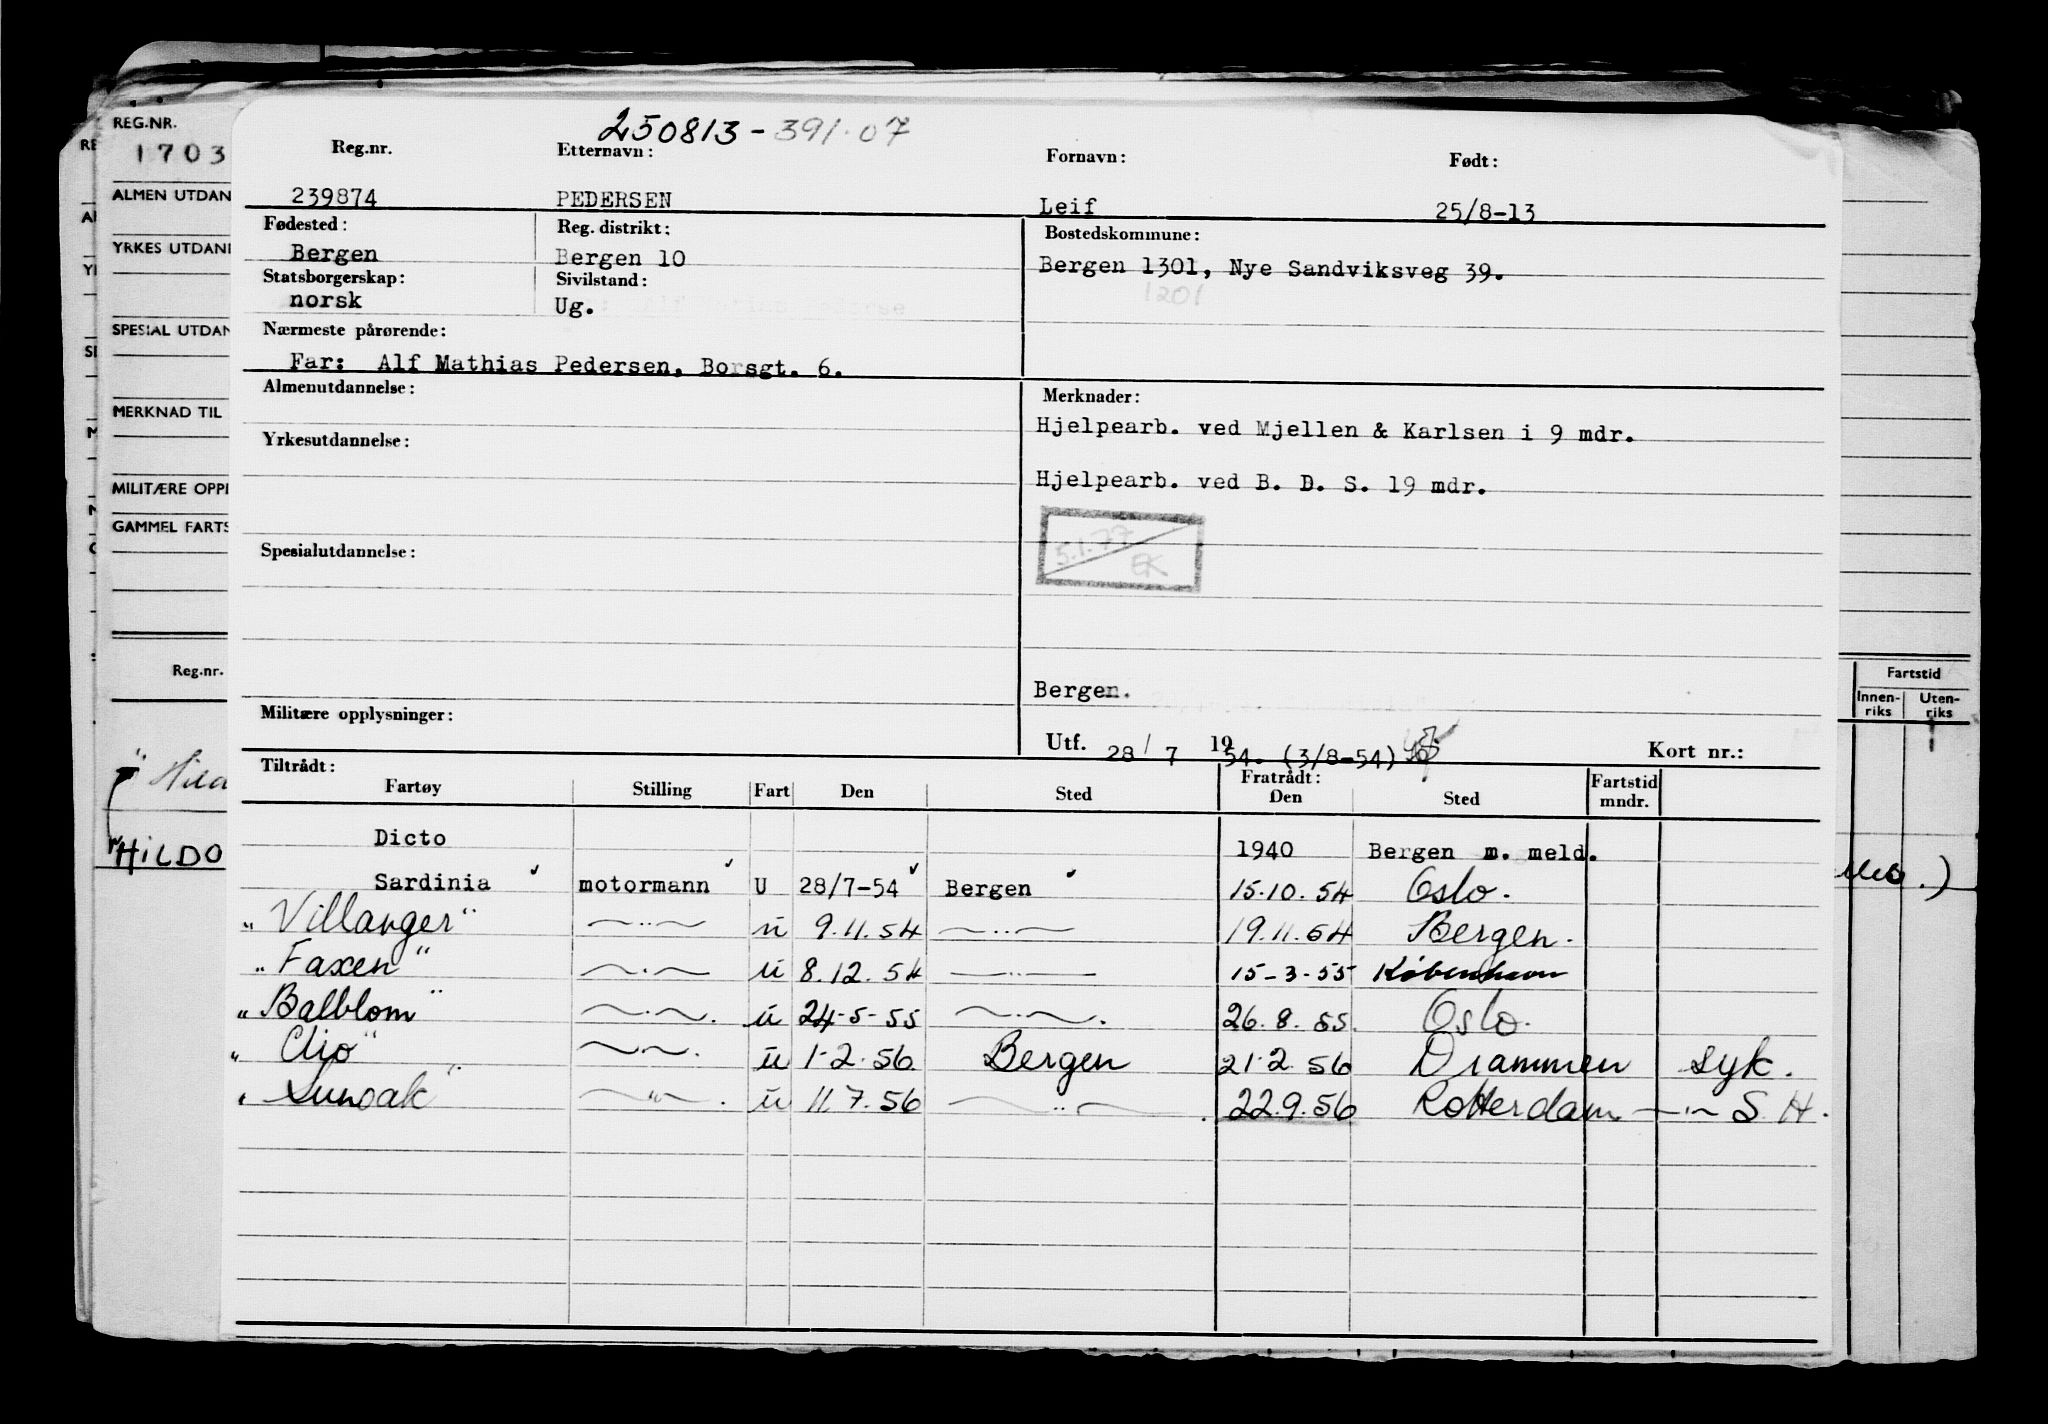 250813-391.07
Reg.nr. Etternavn: Fornavn: Født:
239874 PEDERSEN Leif 25/8-13
Fødested: Reg. distrikt: Bostedskommune:
Bergen Bergen 10 Bergen 1301, Nye Sandviksveg 39.
Statsborgerskap: Sivilstand: 1201
norsk Ug.
Nærmeste pårørende:
Far: Alf Mathias Pedersen, Borsgt. 6.
Almenutdannelse: Merknader:
Hjelpearb. ved Mjellen & Karlsen i 9 mdr.
Yrkesutdannelse:
Hjelpearb. ved B. D. S. 19 mdr.
5.1.77
EK
Spesialutdannelse:
Bergen.
Militære opplysninger:
Utf. 28/7 1954. (3/8-54) Kort nr.:
Tiltrådt: Fratrådt:
Fartøy Stilling Fart Den Sted Den Sted Fartstid mndr.
Dicto 1940 Bergen m. meld.
Sardinia motormann U 28/7-54 Bergen 15.10.54 Oslo.
"Villanger" —"— u 9.11.54 —"— 19.11.54 Bergen.
"Faxen" —"— u 8.12.54 —"— 15-3-55 København
"Balblom" —"— u 24-5-55 —"— 26.8.55. Oslo.
"Clio" —"— u 1-2.56 Bergen 21-2.56 Drammen syk.
"Sunoak" —"— u 11.7.56 —"— 22.9.56 Rotterdam —"— S.H.
REG.NR.
1703
ALMEN UTDAN
YRKES UTDAN
SPESIAL UTDAN
MERKNAD TIL
MILITÆRE OPPL
GAMMEL FARTS
Reg.nr.
HILDO
Fartstid
Innen-riks Uten-riks